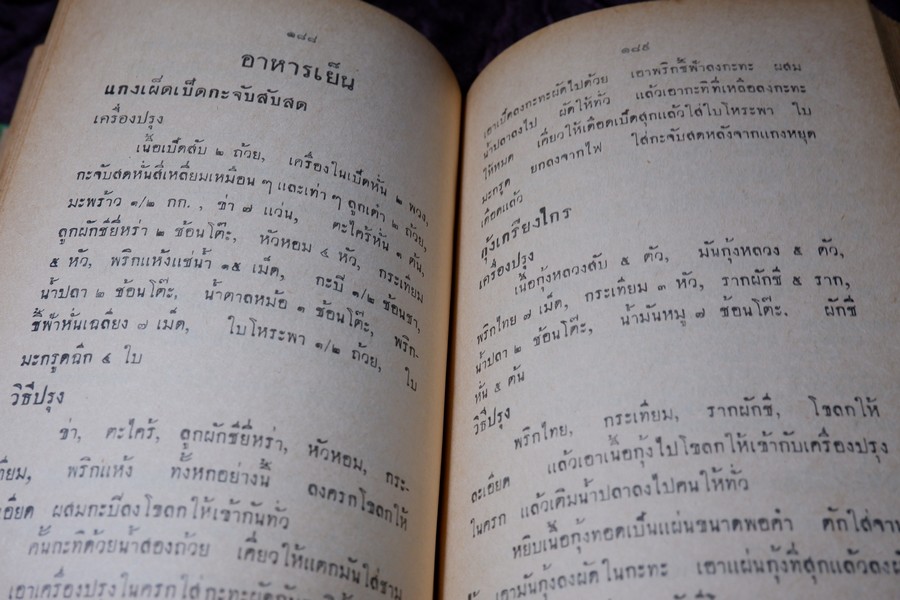 ๑๘๘
อาหารเย็น
แกงเผ็ดเป็ดกะจับสับสด
เครื่องปรุง
เนื้อเป็ดสับ ๒ ถ้วย, เครื่องในเป็ดหั่น ๒ พวง,
กะจับสดหั่นสี่เหลี่ยมเหมือน ๆ และเท่า ๆ ลูกเต๋า ๒ ถ้วย,
มะพร้าว ๑/๒ กก., ข่า ๗ แว่น, ตะไคร้หั่น ๑ ต้น,
ลูกผักชียี่หร่า ๒ ช้อนโต๊ะ, หัวหอม ๔ หัว, กระเทียม
๕ หัว, พริกแห้งแช่น้ำ ๑๕ เม็ด, กะปิ ๑/๒ ช้อนชา,
น้ำปลา ๒ ช้อนโต๊ะ, น้ำตาลหม้อ ๑ ช้อนโต๊ะ, พริก-
ชี้ฟ้าหั่นเฉลียง ๗ เม็ด, ใบโหระพา ๑/๒ ถ้วย, ใบ
มะกรูดฉีก ๔ ใบ
วิธีปรุง
ข่า, ตะไคร้, ลูกผักชียี่หร่า, หัวหอม, กระ-
เทียม, พริกแห้ง ทั้งหกอย่างนี้ ลงครกโขลกให้
ละเอียด ผสมกะปิลงโขลกให้เข้ากันทั่ว
คั้นกะทิด้วยน้ำสองถ้วย เคี่ยวให้แตกมันใส่ชาม
เอาเครื่องปรุงในครกใส่กะทะผัดกับ
๑๘๙
เอาเป็ดลงกะทะผัดไปด้วย เอาพริกชี้ฟ้าลงกะทะ ผสม
น้ำปลาลงไป ผัดให้ทั่ว แล้วเอากะทิที่เหลือลงกะทะ
ให้หมด เคี่ยวให้เดือดเป็ดสุกแล้วใส่ใบโหระพา ใบ
มะกรูด ยกลงจากไฟ ใส่กะจับสดหลังจากแกงหยุด
เดือดแล้ว
กุ้งเกรียงไกร
เครื่องปรุง
เนื้อกุ้งหลวงสับ ๕ ตัว, มันกุ้งหลวง ๕ ตัว,
พริกไทย ๗ เม็ด, กระเทียม ๓ หัว, รากผักชี ๕ ราก,
น้ำปลา ๒ ช้อนโต๊ะ, น้ำมันหมู ๗ ช้อนโต๊ะ. ผักชี
หั่น ๕ ต้น
วิธีปรุง
พริกไทย, กระเทียม, รากผักชี, โขลกให้
ละเอียด แล้วเอาเนื้อกุ้งไปโขลกให้เข้ากับเครื่องปรุง
ในครก แล้วเติมน้ำปลาลงไปคนให้ทั่ว
หยิบเนื้อกุ้งทอดเป็นแผ่นขนาดพอคำ ตักใส่จาน
เอามันกุ้งลงผัดในกะทะ เอาแผ่นกุ้งที่สุกแล้วลง